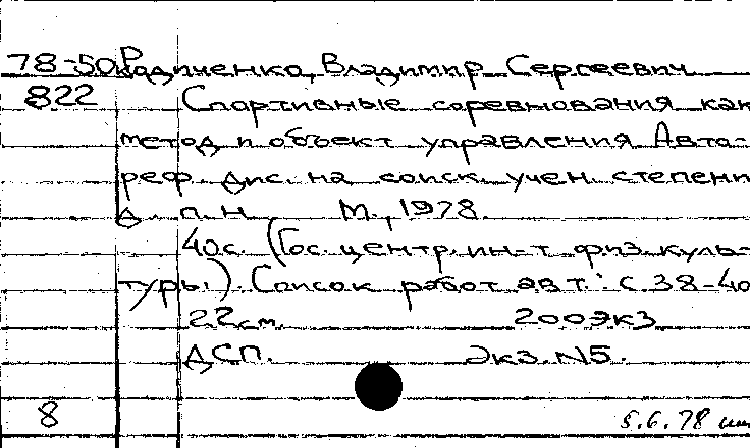 78-50 Родиченко, Владимир Сергеевич
822 Спортивные соревнования как
метод и объект управления Авто-
реф. дис. на соиск. учен. степени
д. п. н. М., 1978.
40с. (Гос. центр. ин-т физ. куль-
туры). Список работ авт.: с 38-40
22см. 200экз.
ДСП. Экз. N5.
8 5.6.78